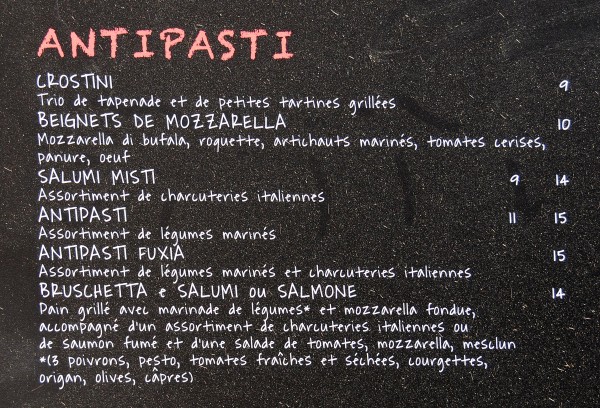 ANTIPASTI
CROSTINI 9
Trio de tapenade et de petites tartines grillées
BEIGNETS DE MOZZARELLA 10
Mozzarella di bufala, roquette, artichauts marinés, tomates cerises,
panure, oeuf
SALUMI MISTI 9 14
Assortiment de charcuteries italiennes
ANTIPASTI 11 15
Assortiment de légumes marinés
ANTIPASTI FUXIA 15
Assortiment de légumes marinés et charcuteries italiennes
BRUSCHETTA e SALUMI ou SALMONE 14
Pain grillé avec marinade de légumes* et mozzarella fondue,
accompagné d'un assortiment de charcuteries italiennes ou
de saumon fumé et d'une salade de tomates, mozzarella, mesclun
*(3 poivrons, pesto, tomates fraîches et séchées, courgettes,
origan, olives, câpres)